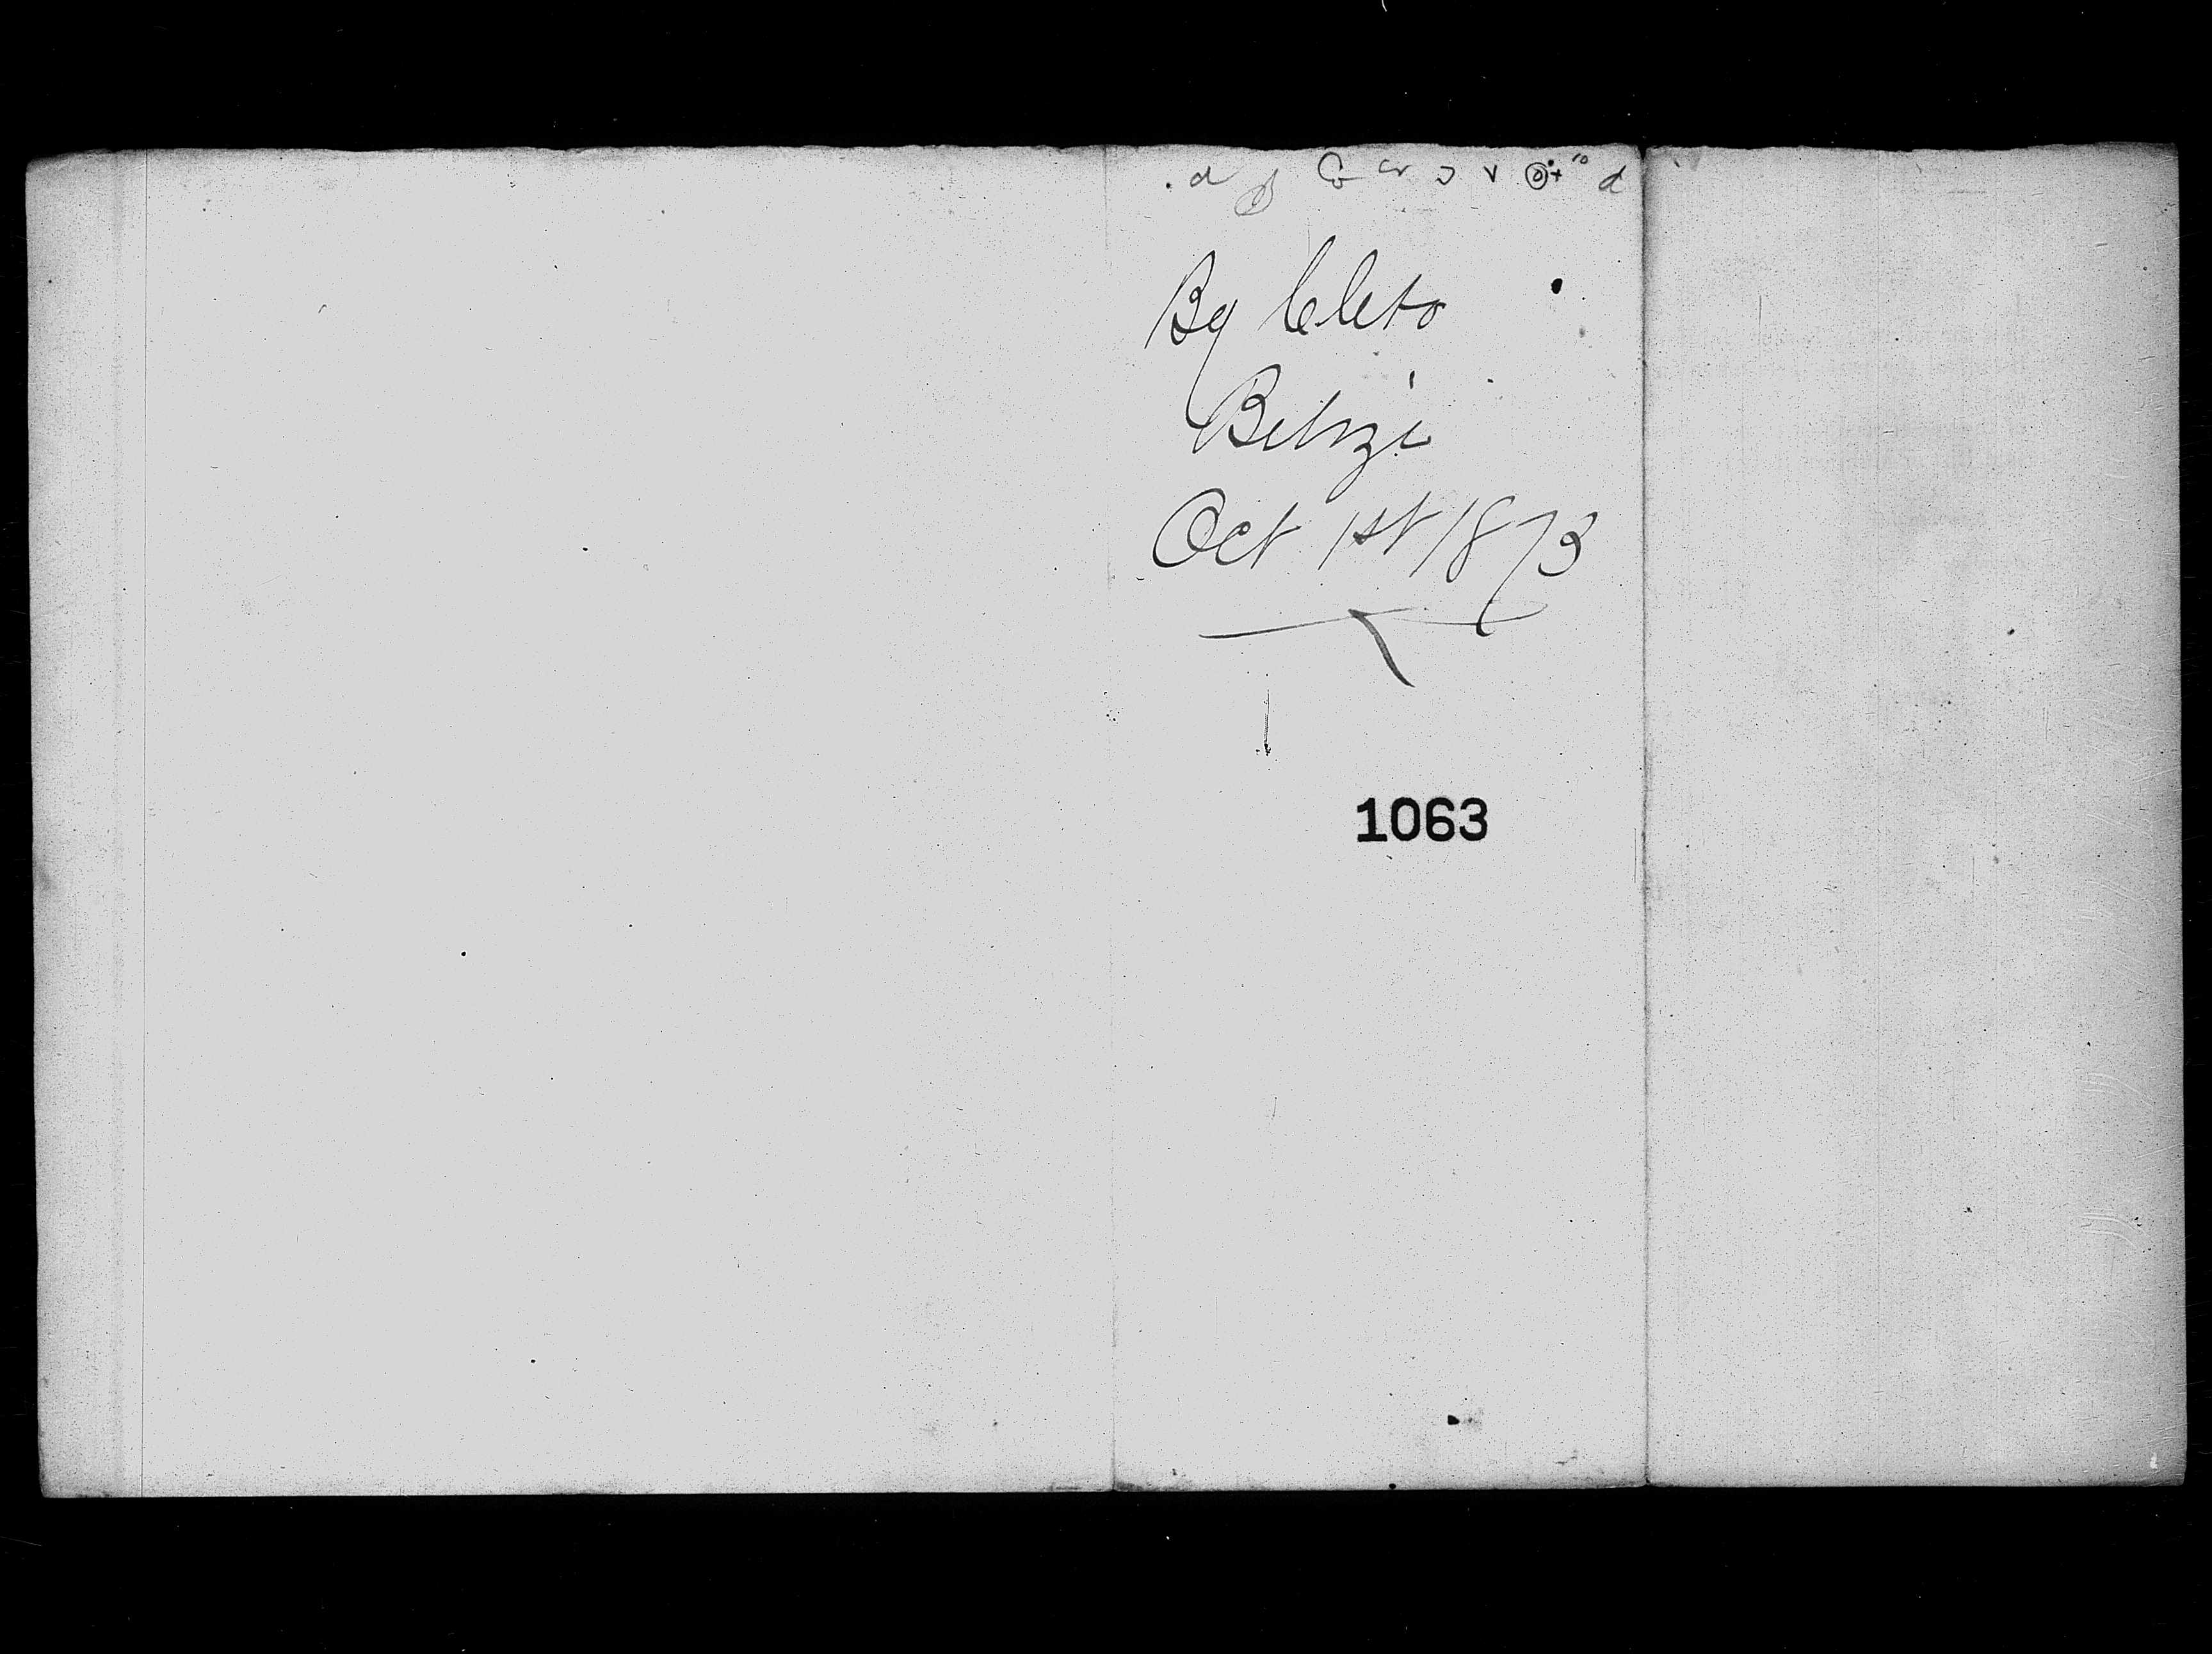 By Cleto
Belizi
Oct 1st 1873
1063